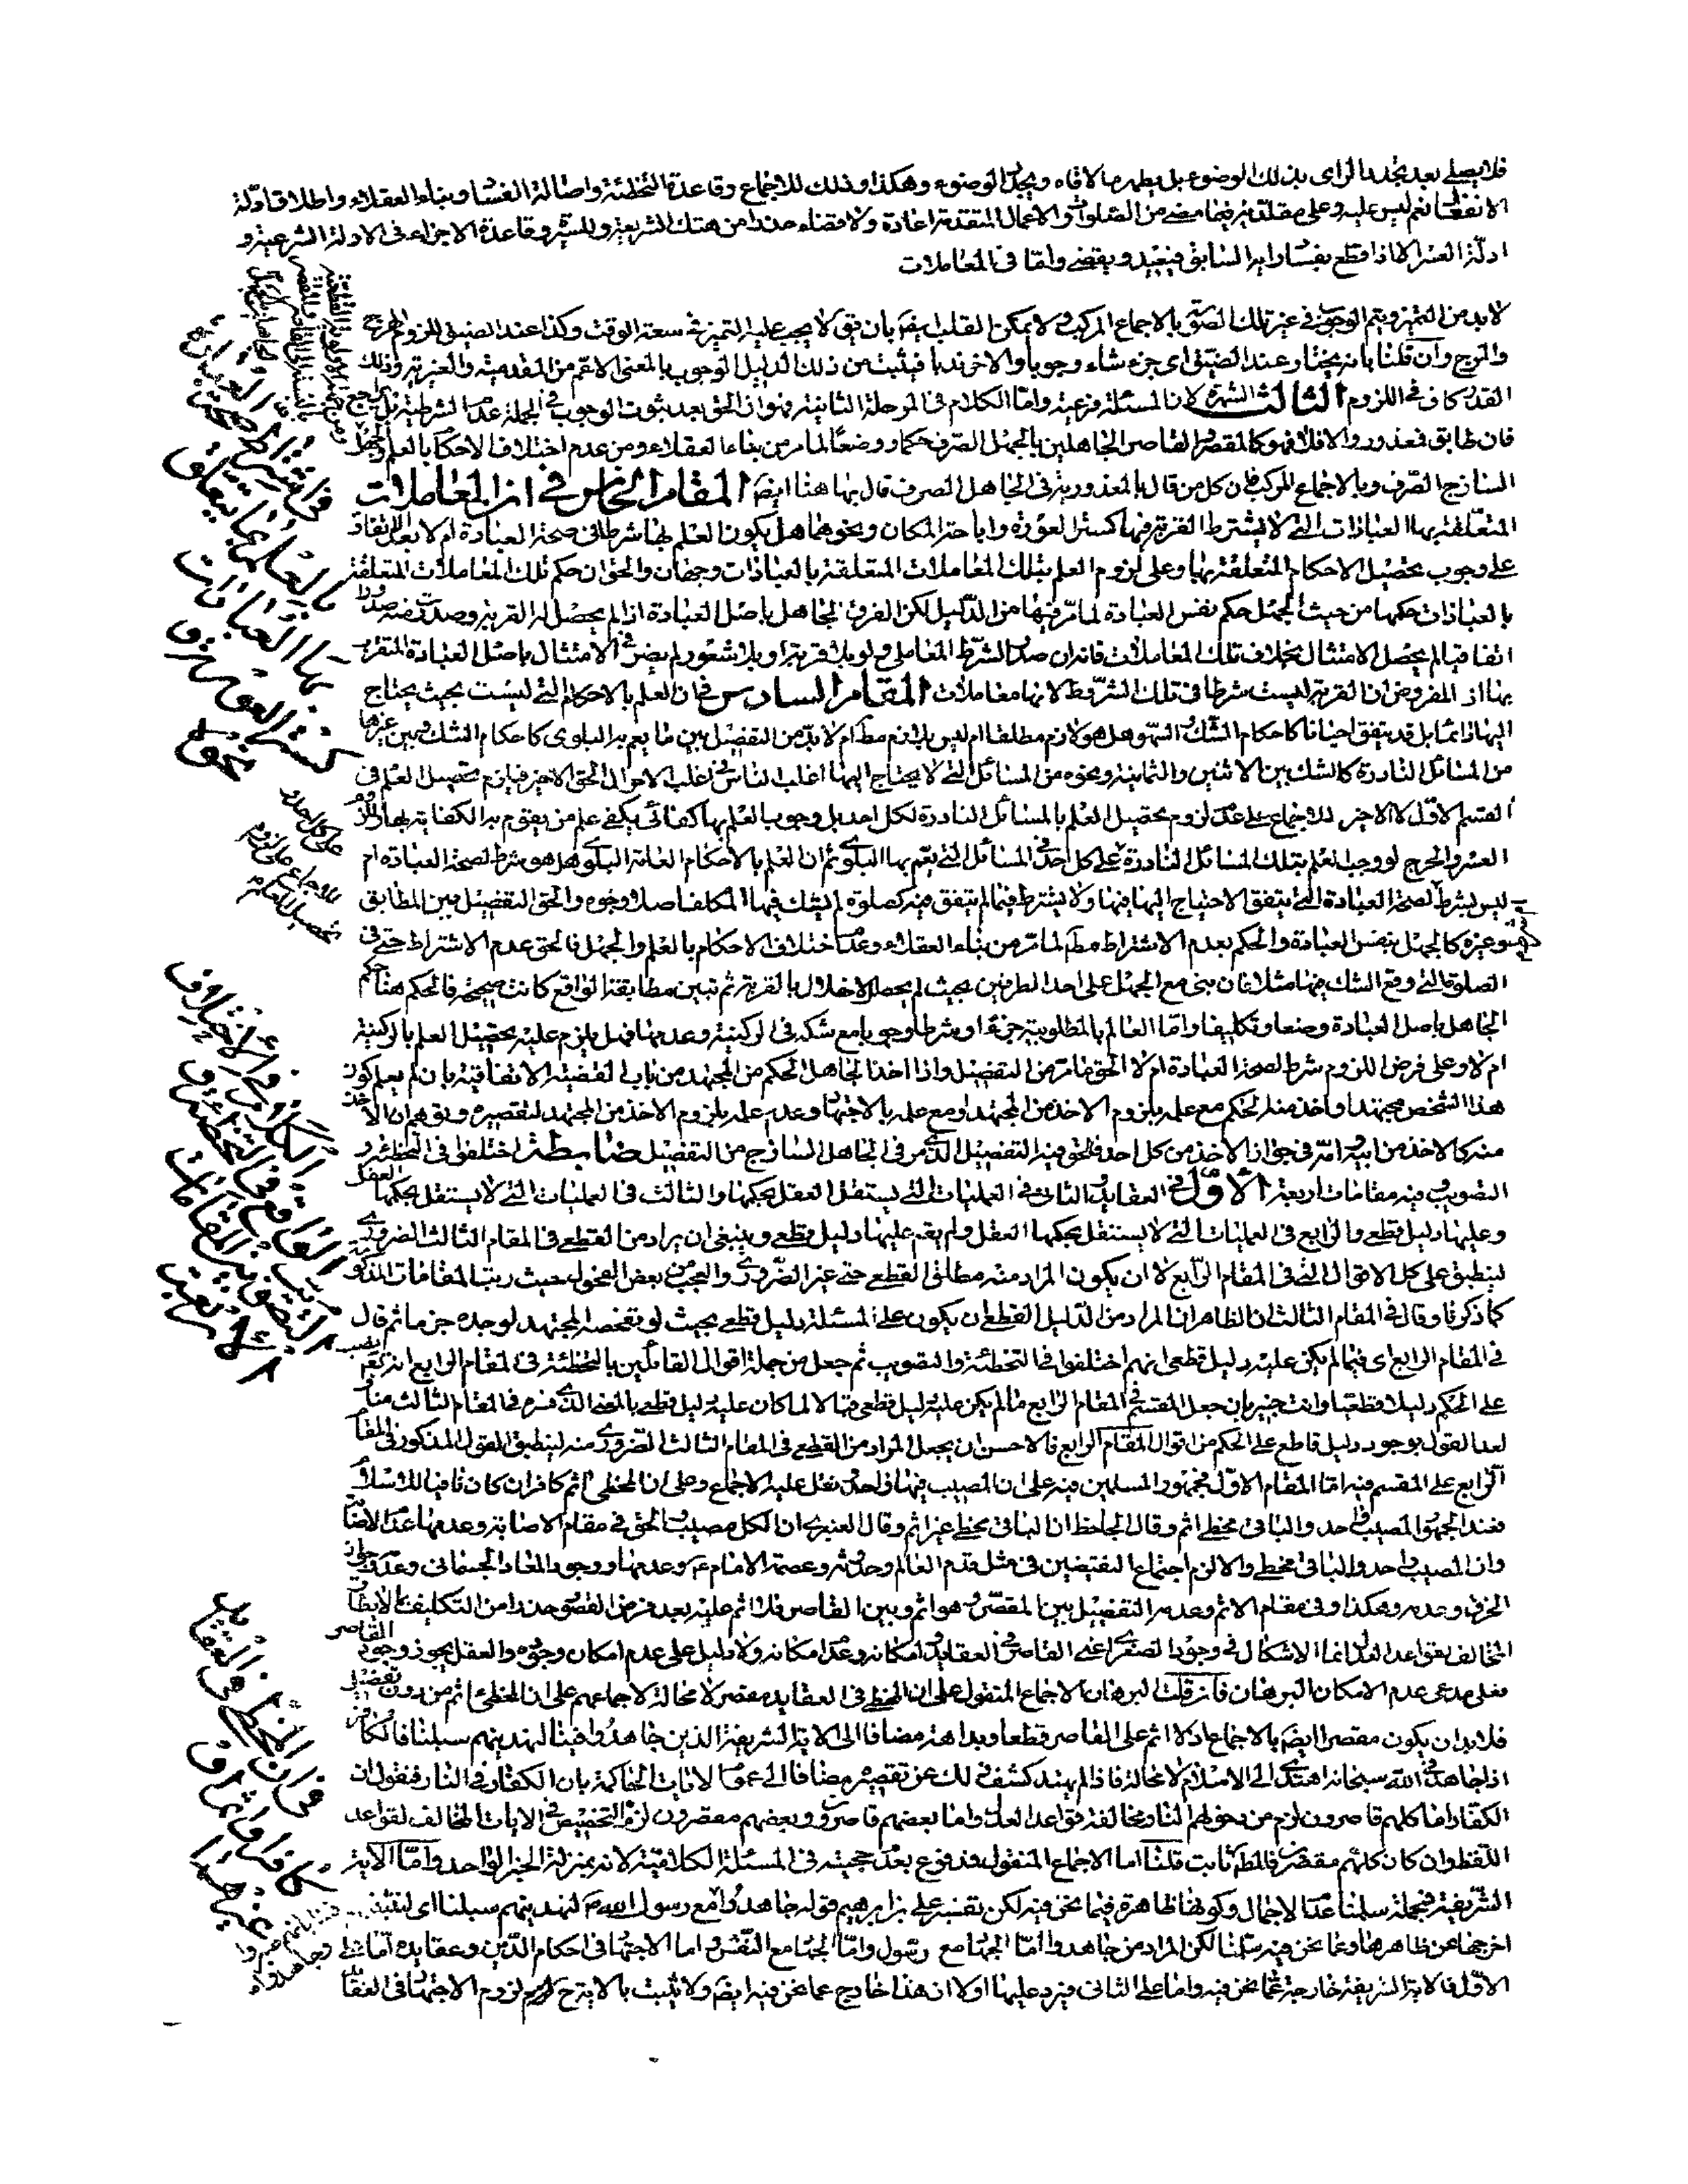 فلا يصلي بعد تجدد الراى بذلك الوضوء بل يطهر ما لاقاه ويجدد الوضوء وهكذا وذلك للاجماع وقاعدة التخطئة واصالة الفساد وبناء العقلاء واطلاق ادلة
الانفعال نعم ليس عليه وعلى مقلديه فيما مضى من الصلوات والاعمال المتقدمة اعادة ولا قضاء حذرا من هتك الشريعة وللسيرة وقاعدة الاجزاء فى الادلة الشرعية و
ادلة العسر الا اذا قطع بفساد رايه السابق فيعيد ويقضى واما فى المعاملات
لابد من التميز ويتم الوجوب فى غير تلك الصورة بالاجماع المركب ولا يمكن القلب ايضا بان يق لا يجب عليه التميز فى سعة الوقت وكذا عند الضيق للزوم الحرج
والمرج وان قلنا بانه يختار عند الضيق اى جزء شاء وجوبا والاخر ندبا فيثبت من ذلك الدليل الوجوب بالمعنى الاعم من المقدمية والغيرية وذلك
القدر كاف فى اللزوم الثالث الشهرة لان المسئلة فرعية واما الكلام فى المرحلة الثانية فهو ان الحق بعد ثبوت الوجوب فى الجملة عدم الشرطية
فان طابق فمعذور والا فلا فهو كالمقصر القاصر الجاهلين بالجهل الصرف حكما ووضعا لما مر من بناء العقلاء ومن عدم اختلاف الاحكام بالعلم والجهل
الساذج الصرف وبالاجماع المركب فان كل من قال بالمعذورية فى الجاهل الصرف قال بها هنا ايضا المقام الخامس فى ان المعاملات
المتعلقة بها العبادات التى لا يشترط القربة فيها كستر العورة واباحة المكان ونحوهما هل يكون العلم بها شرطا فى صحة العبادة ام لا بعد الاتفاق
على وجوب تحصيل الاحكام المتعلقة بها وعلى لزوم العلم بتلك المعاملات المتعلقة بالعبادات وجهان والحق ان حكم تلك المعاملات المتعلقة
بالعبادات حكمها من حيث الجهل حكم نفس العبادة لما مر فيها من الدليل لكن الفرق ان الجاهل باصل العبادة اذا لم يحصل له القربة وصدرت منه صدورا
اتفاقيا لم يحصل الامتثال بخلاف تلك المعاملات فانه ان صدر الشرط المعاملى ولو بلا قربة او بلا شعور لم يضر فى الامتثال باصل العبادة المتقرب
بها اذ المفروض ان القربة ليست شرطا فى تلك الشروط لانها معاملات المقام السادس فى ان العلم بالاحكام التى ليست بحيث يحتاج
اليها دائما بل قد يتفق احيانا كاحكام الشك والسهو هل هو لازم مطلقا ام ليس بلازم مط ام لابد من التفصيل بين ما يعم به البلوى كاحكام الشك وبين غيرها
من المسائل النادرة كالشك بين الاثنين والثمانية ونحوه من المسائل التى لا يحتاج اليها اغلب الناس فى اغلب الاحوال الحق الاخير فيلزم تحصيل العلم فى
القسم الاول لا الاخير للاجماع على عدم لزوم تحصيل العلم بالمسائل النادرة لكل احد بل وجوب العلم بها كفائى يكفى علم من يقوم به الكفاية بها وللزوم
العسر والحرج لو وجب العلم بتلك المسائل النادرة على كل احد فى المسائل التى يعم بها البلوى ثم ان العلم بالاحكام العامة البلوى هل هو شرط لصحة العبادة ام
ليس بشرط لصحة العبادة التى يتفق الاحتياج اليها فيها ولا يشترط فيما لم يتفق فيه كصلوة لم يشك فيها المكلف اصلا وجوه والحق التفصيل بين المطابق
وغيره كالجهل بنفس العبادة والحكم بعدم الاشتراط مط لما مر من بناء العقلاء وعدم اختلاف الاحكام بالعلم والجهل فالحق عدم الاشتراط حتى فى
الصلوة التى وقع الشك فيها مثلا فان بنى مع الجهل على احد الطرفين بحيث لم يحصل الاخلال بالقربة ثم تبين مطابقة الواقع كانت صحيحة فالحكم هنا حكم
الجاهل باصل العبادة وضعا وتكليفا واما العالم بالمطلوبية جزءا او شرطا وجوبا مع شكه فى الركنية وعدمها فهل يلزم عليه تحصيل العلم بالركنية
ام لا وعلى فرض اللزوم شرط لصحة العبادة ام لا الحق ما مر من التفصيل واذا اخذ الجاهل الحكم من المجتهد من باب القضية الاتفاقية بان لم يعلم كون
هذا الشخص مجتهدا واخذ منه الحكم مع علمه بلزوم الاخذ من المجتهد او مع علمه بالاجتهاد وعدم علمه بلزوم الاخذ من المجتهد لتقصيره وتوهم ان الاخذ
منه كالاخذ من ابيه وامه فى جواز الاخذ من كل احد فالحق فيه التفصيل الذى مر فى الجاهل الساذج من التفصيل ضابطة اختلفوا فى التخطئة و
التصويب فيه مقامات اربعة الاول فى العقايد الثانى فى العمليات التى يستقل العقل بحكمها والثالث فى العمليات التى لا يستقل بحكمها العقل
وعليها دليل قطعى والرابع فى العمليات التى لا يستقل بحكمها العقل ولم يقم عليها دليل قطعى وينبغى ان يراد من القطعى فى المقام الثالث الضرورى
لينطبق على كل الاقوال التى فى المقام الرابع لا ان يكون المراد منه مطلق القطعى حتى غير الضرورى والعجب من بعض الفحول حيث رتب المقامات المذكورة
كما ذكرنا وقال فى المقام الثالث ان الظاهر ان المراد من الدليل القطعى ان يكون على المسئلة دليل قطعى بحيث لو تفحصه المجتهد لوجده جزما ثم قال
فى المقام الرابع اى فيما لم يكن عليه دليل قطعى انهم اختلفوا فى التخطئة والتصويب ثم جعل من جملة اقوال القائلين بالتخطئة فى المقام الرابع انه نصب
على الحكم دليلا قطعيا وانت خبير بان جعل المقسم فى المقام الرابع ما لم يكن عليه دليل قطعى بالمعنى الذى فسره فى المقام الثالث مناف
لعد القول بوجود دليل قاطع على الحكم من اقوال المقام الرابع فالاحسن ان يجعل المراد من القطعى فى المقام الثالث الضرورى منه لينطبق القول المذكور فى المقام
الرابع على المقسم فيه اما المقام الاول فجمهور المسلمين فيه على ان المصيب فيها واحد ونقل عليه الاجماع وعلى ان المخطى اثم كافر ان كان نافيا للاسلام
فعند الجمهور المصيب واحد والباقى مخطى اثم وقال الجاحظ ان الباقى مخطى غير اثم وقال العنبرى ان الكل مصيب والحق فى مقام الاصابة وعدمها عدم الاصابة
وان المصيب واحد والباقى مخطى والا لزم اجتماع النقيضين فى مثل قدم العالم وحدوثه وعصمة الامام ع وعدمها ووجود المعاد الجسمانى وعدمه وجواز
الخرق وعدمه وهكذا وفى مقام الاثم وعدمه التفصيل بين المقصر فهو اثم وبين القاصر فلا اثم عليه بعد فرض القصور حذرا من التكليف بما لا يطاق
المخالف لقواعد العدل انما الاشكال فى وجود الصغرى اعنى القاصر فى العقايد وامكانه وعدم امكانه ولا دليل على عدم امكان وجوده والعقل يجوز وجود القاصر
فعلى مدعى عدم الامكان البرهان فان قلت البرهان الاجماع المنقول على ان المخطى فى العقايد مقصر لا محالة لاجماعهم على ان المخطى اثم من دون تفصيل
فلابد ان يكون مقصرا ايضا بالاجماع اذ لا اثم على القاصر قطعا وبداهة مضافا الى الاية الشريفة الذين جاهدوا فينا لنهدينهم سبلنا فالكافر
اذا جاهد فى الله سبحانه اهتدى الى الاسلام لا محالة فاذا لم يهتد كشف ذلك عن تقصيره مضافا الى عموم الايات الحاكمة بان الكفار فى النار فنقول ان
الكفار اما كلهم قاصرون لزم من دخولهم النار مخالفة قواعد العدل واما بعضهم قاصرون وبعضهم مقصرون لزم التخصيص فى الايات المخالف لقواعد
اللفظ وان كان كلهم مقصرين فالمط ثابت قلنا اما الاجماع المنقول فمدفوع بعدم حجيته فى المسئلة الكلامية لانه بمنزلة الخبر الواحد واما الاية
الشريفة فمجملة سلمنا عدم الاجمال وكونها ظاهرة فيما نحن فيه لكن تفسير على بن ابرهيم قوله جاهدوا مع رسول الله ص لنهدينهم سبلنا اى لنثبتنهم
اخرجها عن ظاهرها وعما نحن فيه سلمنا لكن المراد من جاهدوا اما الجهاد مع رسول واما الجهاد مع النفس واما الاجتهاد فى احكام الدين وعقايده اما على
الاول فالاية الشريفة خارجة عما نحن فيه واما على الثانى فيرد عليها اولا ان هذا خارج عما نحن فيه ايضا ولا يثبت بالاية ح لزوم الاجتهاد فى العقايد
فى اشتراط صحة العبادات
بالعلم بما يتعلق
بها العبادات
كستر العورة و
نحوه
فى ان المخطى فى العقايد
كافر او اثم او
غيرهما